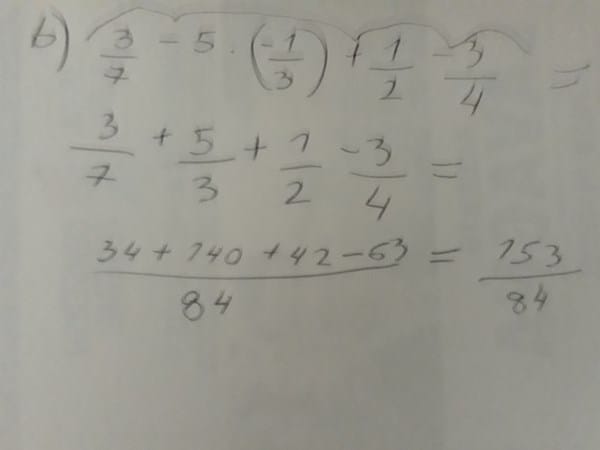 b) 3/7 - 5 · (-1/3) + 1/2 - 3/4 =
3/7 + 5/3 + 1/2 - 3/4 =
34 + 140 + 42 - 63 / 84 = 153/84